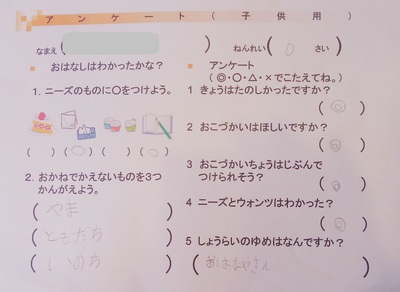 アンケート(子供用)
なまえ( ) ねんれい( 0 さい )
おはなしはわかったかな?
1. ニーズのものに○をつけよう。
( ) (○) ( ) (○)
2. おかねでかえないものを3つ
かんがえよう。
( やま )
( ともだち )
( いのち )
アンケート
(◎・○・△・×でこたえてね。)
1 きょうはたのしかったですか?
( ◎ )
2 おこづかいはほしいですか?
( ◎ )
3 おこづかいちょうはじぶんで
つけられそう?
( ◎ )
4 ニーズとウォンツはわかった?
( ◎ )
5 しょうらいのゆめはなんですか?
( おはなやさん )